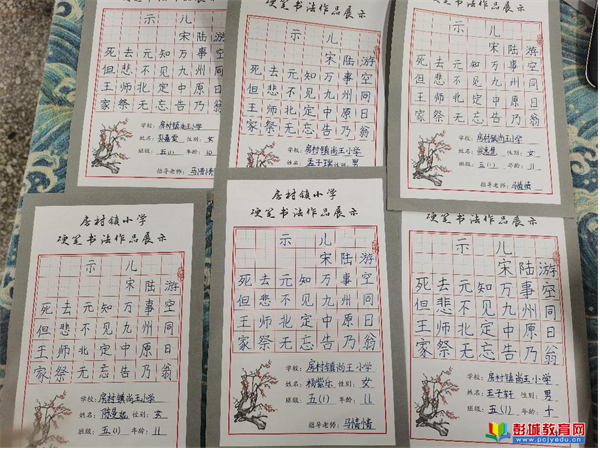 示 儿
宋 陆 游
死 去 元 知 万 事 空
但 悲 不 见 九 州 同
王 师 北 定 中 原 日
家 祭 无 忘 告 乃 翁
学校: 房村镇尚王小学
姓名: 性别: 女
班级: 五(1) 年龄: 10
指导老师: 马倩倩
硬笔书法作品展示
示 儿
宋 陆 游
死 去 元 知 万 事 空
但 悲 不 见 九 州 同
王 师 北 定 中 原 日
家 祭 无 忘 告 乃 翁
学校: 房村镇尚王小学
姓名: 孟子琪 性别: 男
硬笔书法作品展示
示 儿
宋 陆 游
死 去 元 知 万 事 空
但 悲 不 见 九 州 同
王 师 北 定 中 原 日
家 祭 无 忘 告 乃 翁
学校: 房村镇尚王小学
姓名: 性别: 女
班级: 五(1) 年龄: 11
指导老师:
房村镇小学
硬笔书法作品展示
示 儿
宋 陆 游
死 去 元 知 万 事 空
但 悲 不 见 九 州 同
王 师 北 定 中 原 日
家 祭 无 忘 告 乃 翁
学校: 房村镇尚王小学
姓名: 性别: 女
班级: 五(1) 年龄: 11
房村镇小学
硬笔书法作品展示
示 儿
宋 陆 游
死 去 元 知 万 事 空
但 悲 不 见 九 州 同
王 师 北 定 中 原 日
家 祭 无 忘 告 乃 翁
学校: 房村镇尚王小学
姓名: 杨紫乐 性别: 女
班级: 五(1) 年龄: 11
指导老师: 马倩倩
硬笔书法作品展示
示 儿
宋 陆 游
死 去 元 知 万 事 空
但 悲 不 见 九 州 同
王 师 北 定 中 原 日
家 祭 无 忘 告 乃 翁
学校: 房村镇尚王小学
姓名: 王子轩 性别: 男
班级: 五(1) 年龄: 十
彭城教育网
www.pcjyedu.cn